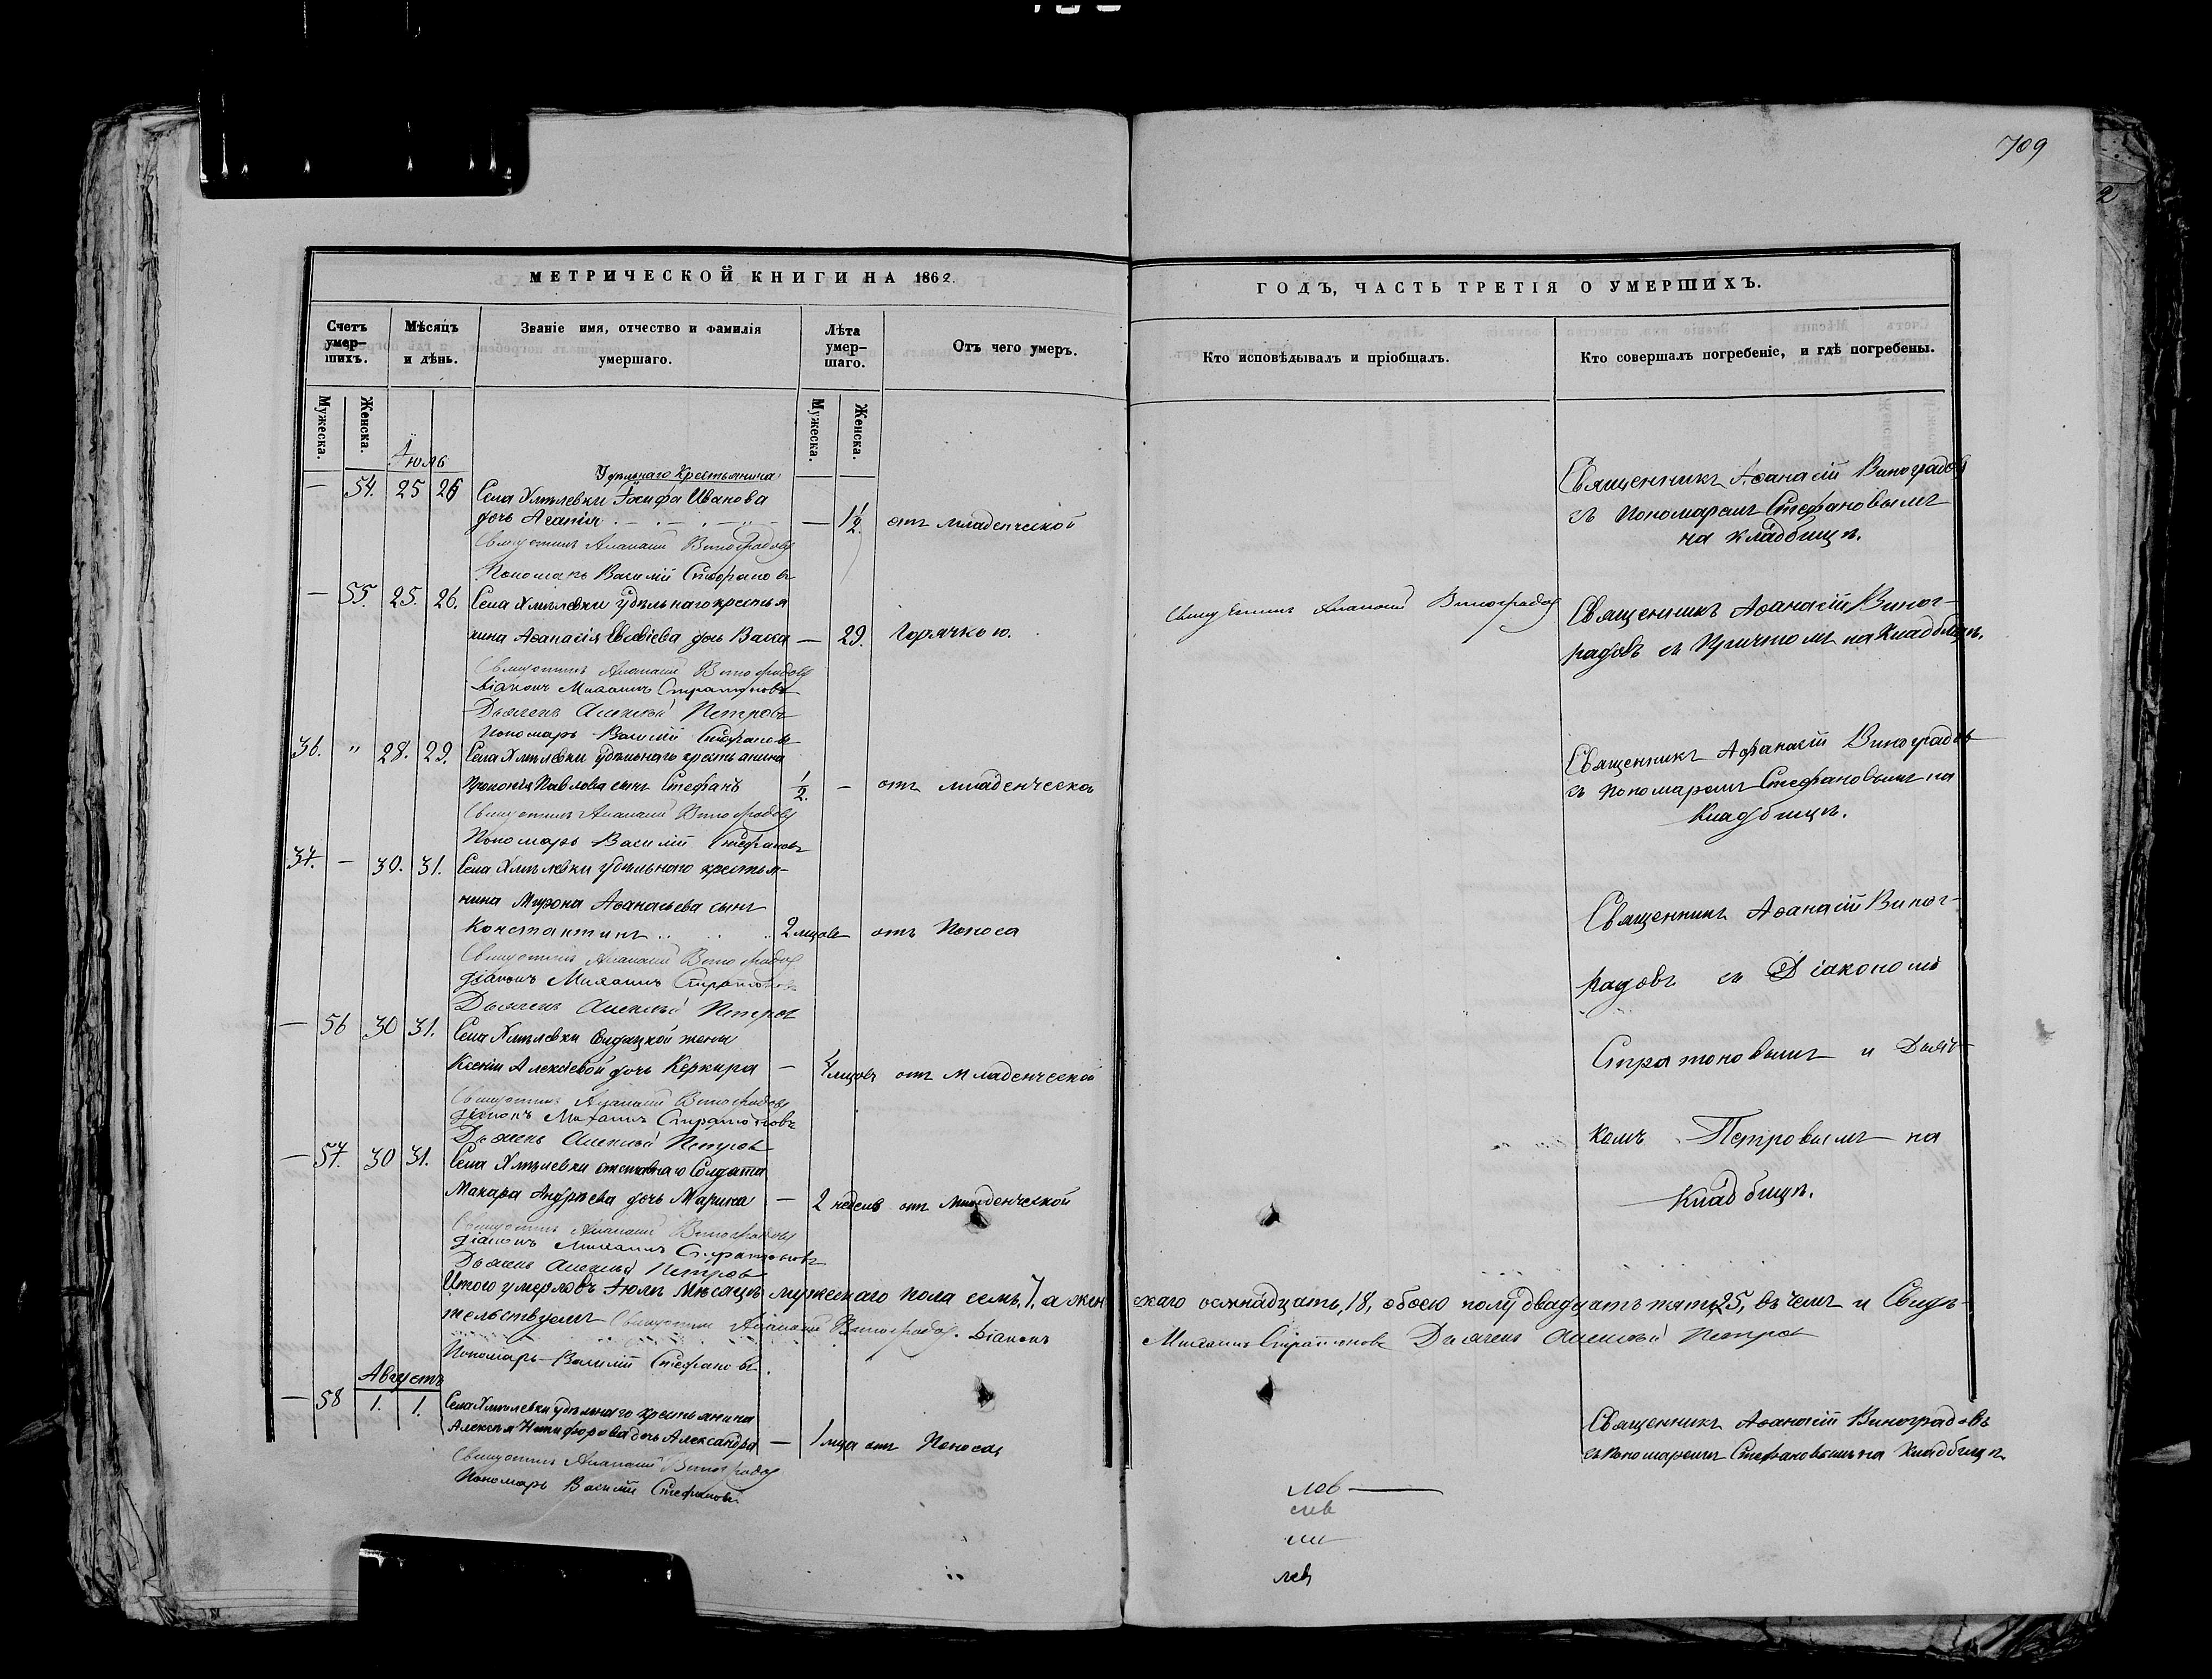 709
2
МЕТРИЧЕСКОЙ КНИГИ НА 1862.
ГОДЪ, ЧАСТЬ ТРЕТІЯ О УМЕРШИХЪ.
Счетъ умер-шихъ.
Мѣсяцъ и дѣнь.
Званіе имя, отчество и фамилія умершаго.
Лѣта умер-шаго.
Отъ чего умеръ.
Кто исповѣдывалъ и пріобщалъ.
Кто совершалъ погребеніе, и гдѣ погребены.
Мужеска.
Женска.
Мужеска.
Женска.
Іюль
Удѣльнаго Крестьянина
— 54. 25 26 Села Хмѣлевки Іосифа Иванова
дочь Агапія — 1½ отъ младенческой
Священникъ Аѳанасій Виноградовъ
Пономарь Василій Стефановъ
Священникъ Аѳанасій Виноградовъ
съ Пономаремъ Стефановымъ
на кладбищѣ.
— 55. 25. 26. Села Хмѣлевки удѣльнаго крестья
нина Аѳанасія Евсевіева дочь Васса — 29. Горячкою.
Священникъ Аѳанасій Виноградовъ
Діаконъ Михаилъ Стратоновъ
Дьячекъ Алексѣй Петровъ
Пономарь Василій Стефановъ
Священникъ Аѳанасій Виноградовъ
Священникъ Аѳанасій Виног-
радовъ съ Причтомъ на Кладбищѣ.
36. " 28. 29. Села Хмѣлевки удѣльнаго крестьянина
Павлова сынъ Стефанъ ½. — отъ младенческой
Священникъ Аѳанасій Виноградовъ
Пономарь Василій Стефановъ
Священникъ Афанасій Виноградовъ
съ Пономаремъ Стефановымъ на
Кладбищѣ.
37. — 30. 31. Села Хмѣлевки удѣльнаго крестья-
нина Мирона Аѳанасьева сынъ
Константинъ 2 мцовъ отъ Поноса
Священникъ Аѳанасій Виноградовъ
Діаконъ Михаилъ Стратоновъ
Дьячекъ Алексѣй Петровъ
Священникъ Аѳанасій Виног-
радовъ съ Діакономъ
Стратоновымъ и Дьяч-
комъ Петровымъ на
Кладбищѣ.
— 56 30 31. Села Хмѣлевки Солдатской жены
Ксеніи Алексіевой дочь Керкира — 4 мцовъ отъ Младенческой
Священникъ Аѳанасій Виноградовъ
Діаконъ Михаилъ Стратоновъ
Дьячекъ Алексѣй Петровъ
— 57. 30 31. Села Хмѣлевки отставнаго Солдата
Макара Андрѣева дочь Марина — 2 недель отъ Младенческой
Священникъ Аѳанасій Виноградовъ
Діаконъ Михаилъ Стратоновъ
Дьячекъ Алексѣй Петровъ
Итого умерло въ Іюлѣ Мѣсяцѣ мужескаго пола семь, 7, а жен скаго осмнадцать, 18, обоего полу двадцать пять 25, въ чемъ и Свидѣ-
тельствуемъ Священникъ Аѳанасій Виноградовъ. Діаконъ Михаилъ Стратоновъ Дьячекъ Алексѣй Петровъ
Пономарь Василій Стефановъ.
Августъ
— 58 1. 1. Села Хмѣлевки удѣльнаго крестьянина
Алексѣя Никифорова дочь Александра — 1 мца отъ Поноса
Священникъ Аѳанасій Виноградовъ
Пономарь Василій Стефановъ
Священникъ Аѳанасій Виноградовъ
съ Пономаремъ Стефановымъ на Кладбищѣ